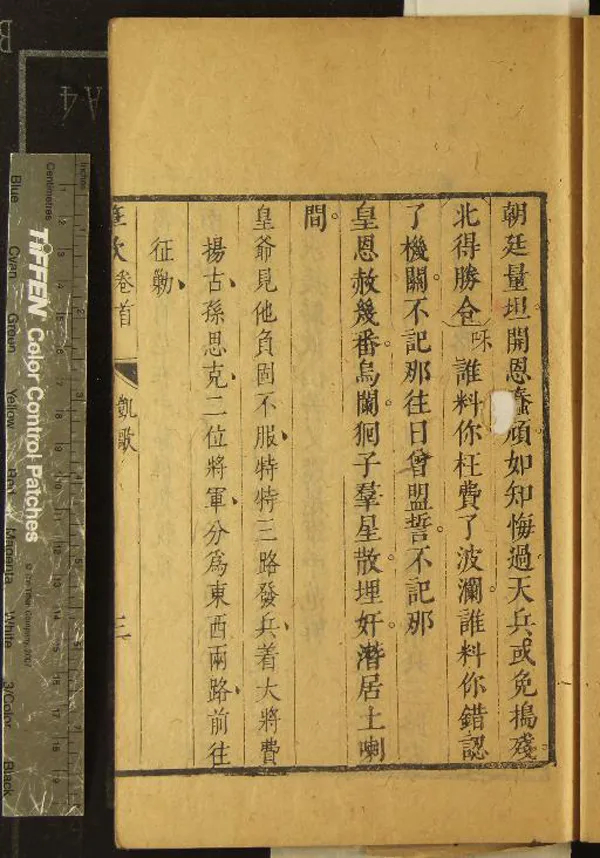 朝廷量坦。開恩蠢頑如知悔過天兵或免搗殘
北得勝令 咊 誰料你枉費了波瀾。誰料你錯認
了機關。不記那往日曾盟誓。不記那
皇恩赦幾番。烏闌狪子羣星散。埋奸潛居土喇
間。
皇爺見他負固不服、特特三路發兵、着大將費
揚古、孫思克、二位將軍、分爲東西兩路、前往
征勦、
卷首 凱歌 三
TIFFEN Color Control Patches
© The Tiffen Company, 2007
Centimetres
Inches
Blue
Cyan
Green
Yellow
Red
Magenta
White
3/Color
Black
A4
B